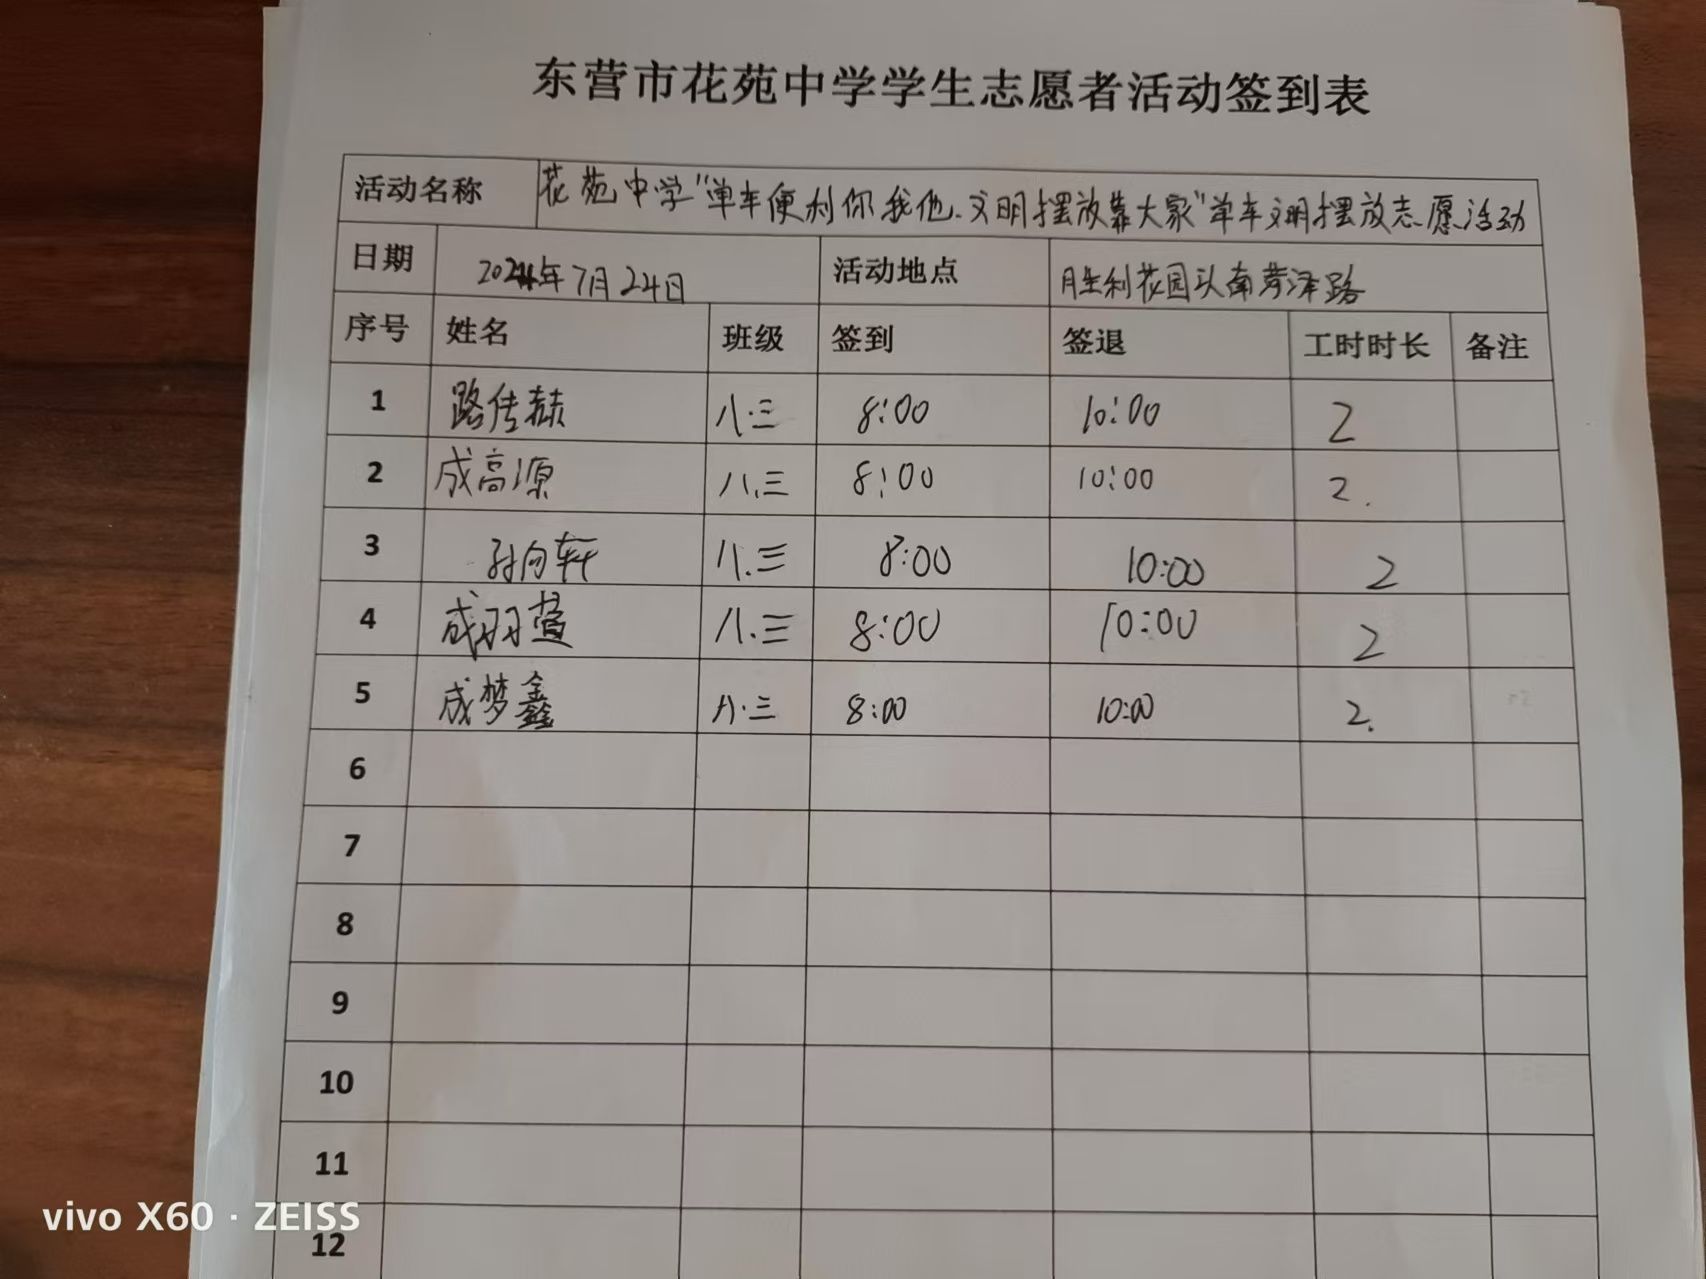 东营市花苑中学学生志愿者活动签到表
活动名称 花苑中学"单车便利你我他、文明摆放靠大家"单车文明摆放志愿活动
日期 2024年7月24日 活动地点 胜利花园以南菏泽路
序号 姓名 班级 签到 签退 工时时长 备注
1 路传赫 八.三 8:00 10:00 2
2 成高源 八.三 8:00 10:00 2.
3 孙向轩 八.三 8:00 10:00 2
4 成羽萱 八.三 8:00 10:00 2
5 成梦鑫 八.三 8:00 10:00 2.
6
7
8
9
10
11
12
vivo X60 · ZEISS